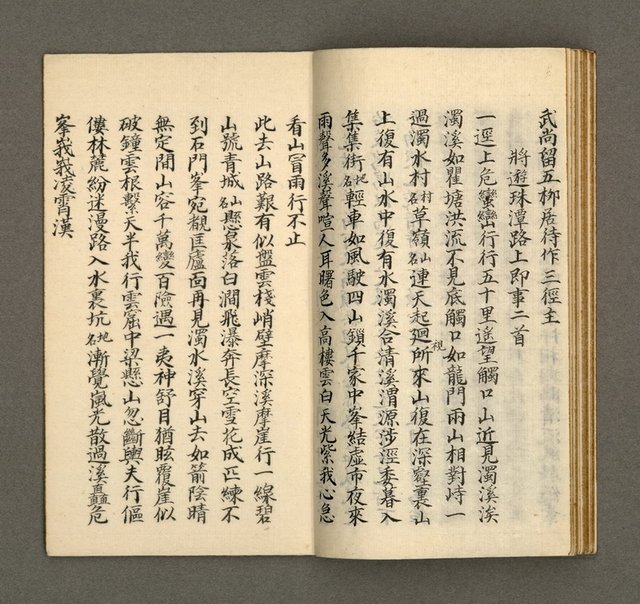 武尚留五柳居待作三徑主
將遊珠潭路上即事二首
一逕上危巒巒山行行五十里遙望觸口山近見濁溪涘
濁溪如瞿塘洪流不見底觸口如龍門兩山相對峙一
過濁水村村名草嶺山名連天起迴視所來山復在深壑裏山
上復有山水中復有水濁溪合清溪渭源涉涇委暮入
集集街地名輕車如風駛四山鎖千家中峯結虛市夜來
雨聲多溪聲喧人耳曙色入高樓雲白天光紫我心急
看山冒雨行不止
此去山路艱有似盤雲棧峭壁摩深溪摩崖行一線碧
山號青城山名懸泉落白澗飛瀑奔長空雪花成匹練不
到石門峯宛覩匡廬面再見濁水溪穿山去如箭陰晴
無定間山容千萬變百險遇一夷神舒目猶眩覆崖似
破鐘雲根繫天半我行雲窟中梁懸山忽斷輿夫行傴
僂林麓紛迷漫路入水裏坑地名漸覺嵐光散過溪矗危
峯峩峩凌霄漢